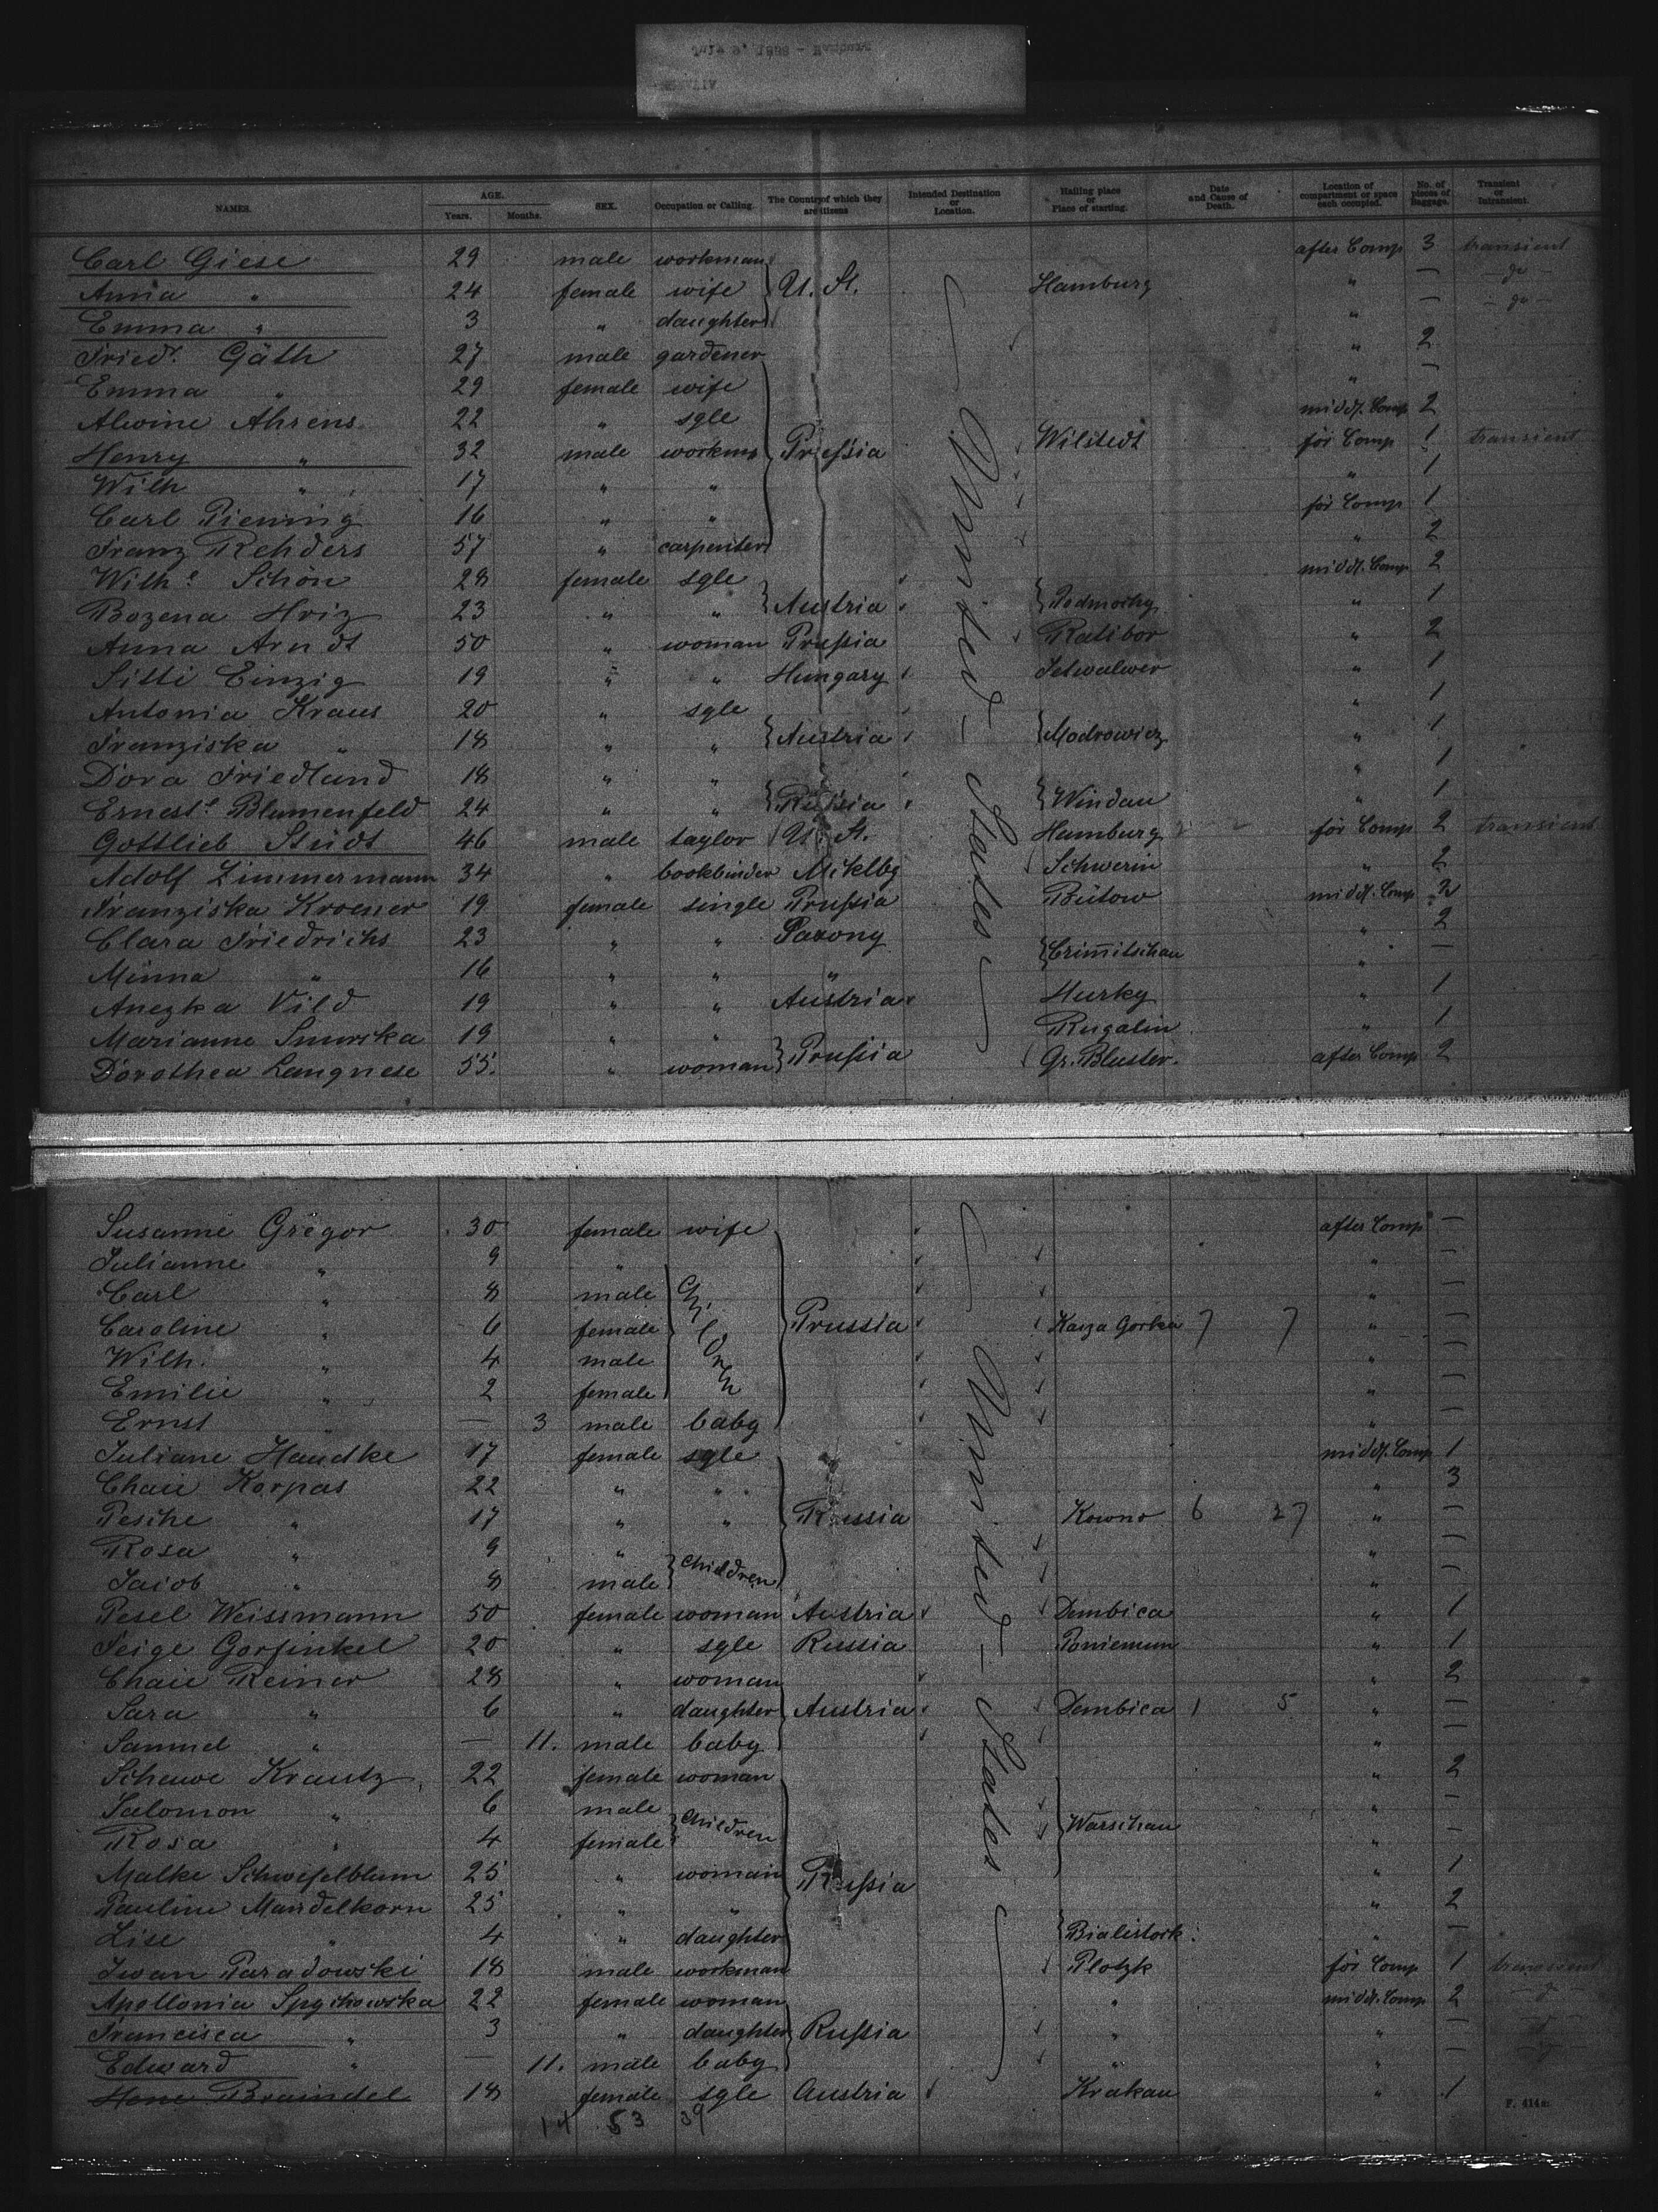 NAMES. AGE. Years. Months. SEX. Occupation or Calling. The Country of which they are citizens Intended Destination or Location. Hailing place or Place of starting. Date and Cause of Death. Location of compartment or space each occupied. No. of pieces of Baggage. Transient or Intransient.
Carl Giese 29 male workman after Comp 3 transient
Anna " 24 female wife U. St. Hamburg " — — do —
Emma " 3 " daughter " — — do —
Friedr. Gäth 27 male gardener " 2
Emma " 29 female wife " —
Alwine Ahrens 22 " sgle middl. Comp 2
Henry " 32 male workman Prussia Wilstedt for Comp 1 transient
Wilh " 17 " " " 1
Carl Piening 16 " " for Comp 1
Franz Rehders 57 " carpenter " 2
Wilhe Schön 28 female sgle middl. Comp 2
Bozena Hriz 23 " " Austria Podmochy " 1
Anna Arndt 50 " woman Prussia Ratibor " 2
Sitti Einzig 19 " " Hungary " 1
Antonia Kraus 20 " sgle " 1
Franziska " 18 " " Austria Modrowicz " 1
Dora Friedlund 18 " " " 1
Ernest.e Blumenfeld 24 " " Russia Windau " 1
Gottlieb Stüdt 46 male taylor U. St. Hamburg for Comp 2 transient
Adolf Zimmermann 34 " bookbinder Meklbg Schwerin " 2
Franziska Kroener 19 female single Prussia Bütow middl. Comp 2
Clara Friedrichs 23 " " Saxony " 2
Minna " 16 " " " Crimitschau " —
Anezka Vild 19 " " Austria Hurky " 1
Marianne Smurska 19 " " Rugalin " 1
Dorothea Langnese 55. " woman Prussia Gr. Bluster. after Comp 2
United — States
Susanne Gregor 30 female wife after Comp —
Julianne " 9 " " —
Carl " 8 male Children " —
Caroline " 6 female Prussia Karza Gorka 7 7 " —
Wilh. " 4 male " —
Emilie " 2 female " —
Ernst " — 3 male baby " —
Juliane Handke 17 female sgle middl. Comp 1
Chaie Korpas 22 " " " 3
Pesche " 17 " " Russia Kowno 6 27 " —
Rosa " 9 " " —
Jacob " 8 male Children " —
Pesel Weissmann 50 female woman Austria Dembica " 1
Feige Gorfinkel 20 " sgle Russia Poniemun " 1
Chaie Reiner 28 " woman " 2
Sara " 6 " daughter Austria Dembica 1 5 " —
Samuel " — 11. male baby " —
Schewe Krautz 22 female woman " 2
Salomon " 6 male " —
Rosa " 4 female Children Warschau " —
Malke Schwefelblum 25 " woman Russia " 1
Pauline Mandelkorn 25 " " " 2
Lise " 4 " daughter Bialistock " —
Iwan Paradowski 18 male workman Plotzk for Comp 1 transient
Apollonia Spychowska 22 female woman " middl. Comp 2 — do —
Francisca " 3 " daughter Russia " " — — do —
Edward " — 11. male baby " " — — do —
Hene Braindel 18 female sgle Austria Krakau " 1
United — States
14 53 39
F. 414a.